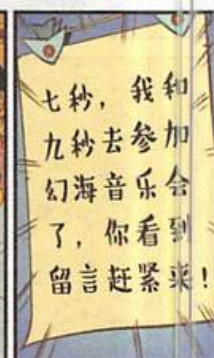 七秒，我和
九秒去参加
幻海音乐会
了，你看到
留言赶紧来！